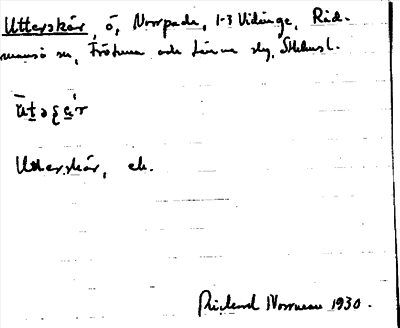 Utterskär, ö, Norrpada, 1-3 Vidinge, Råd-
mansö sn, Frötuna och Länna slg, Sthlmsl.
Utterskär, ek.
Rickard 1930.